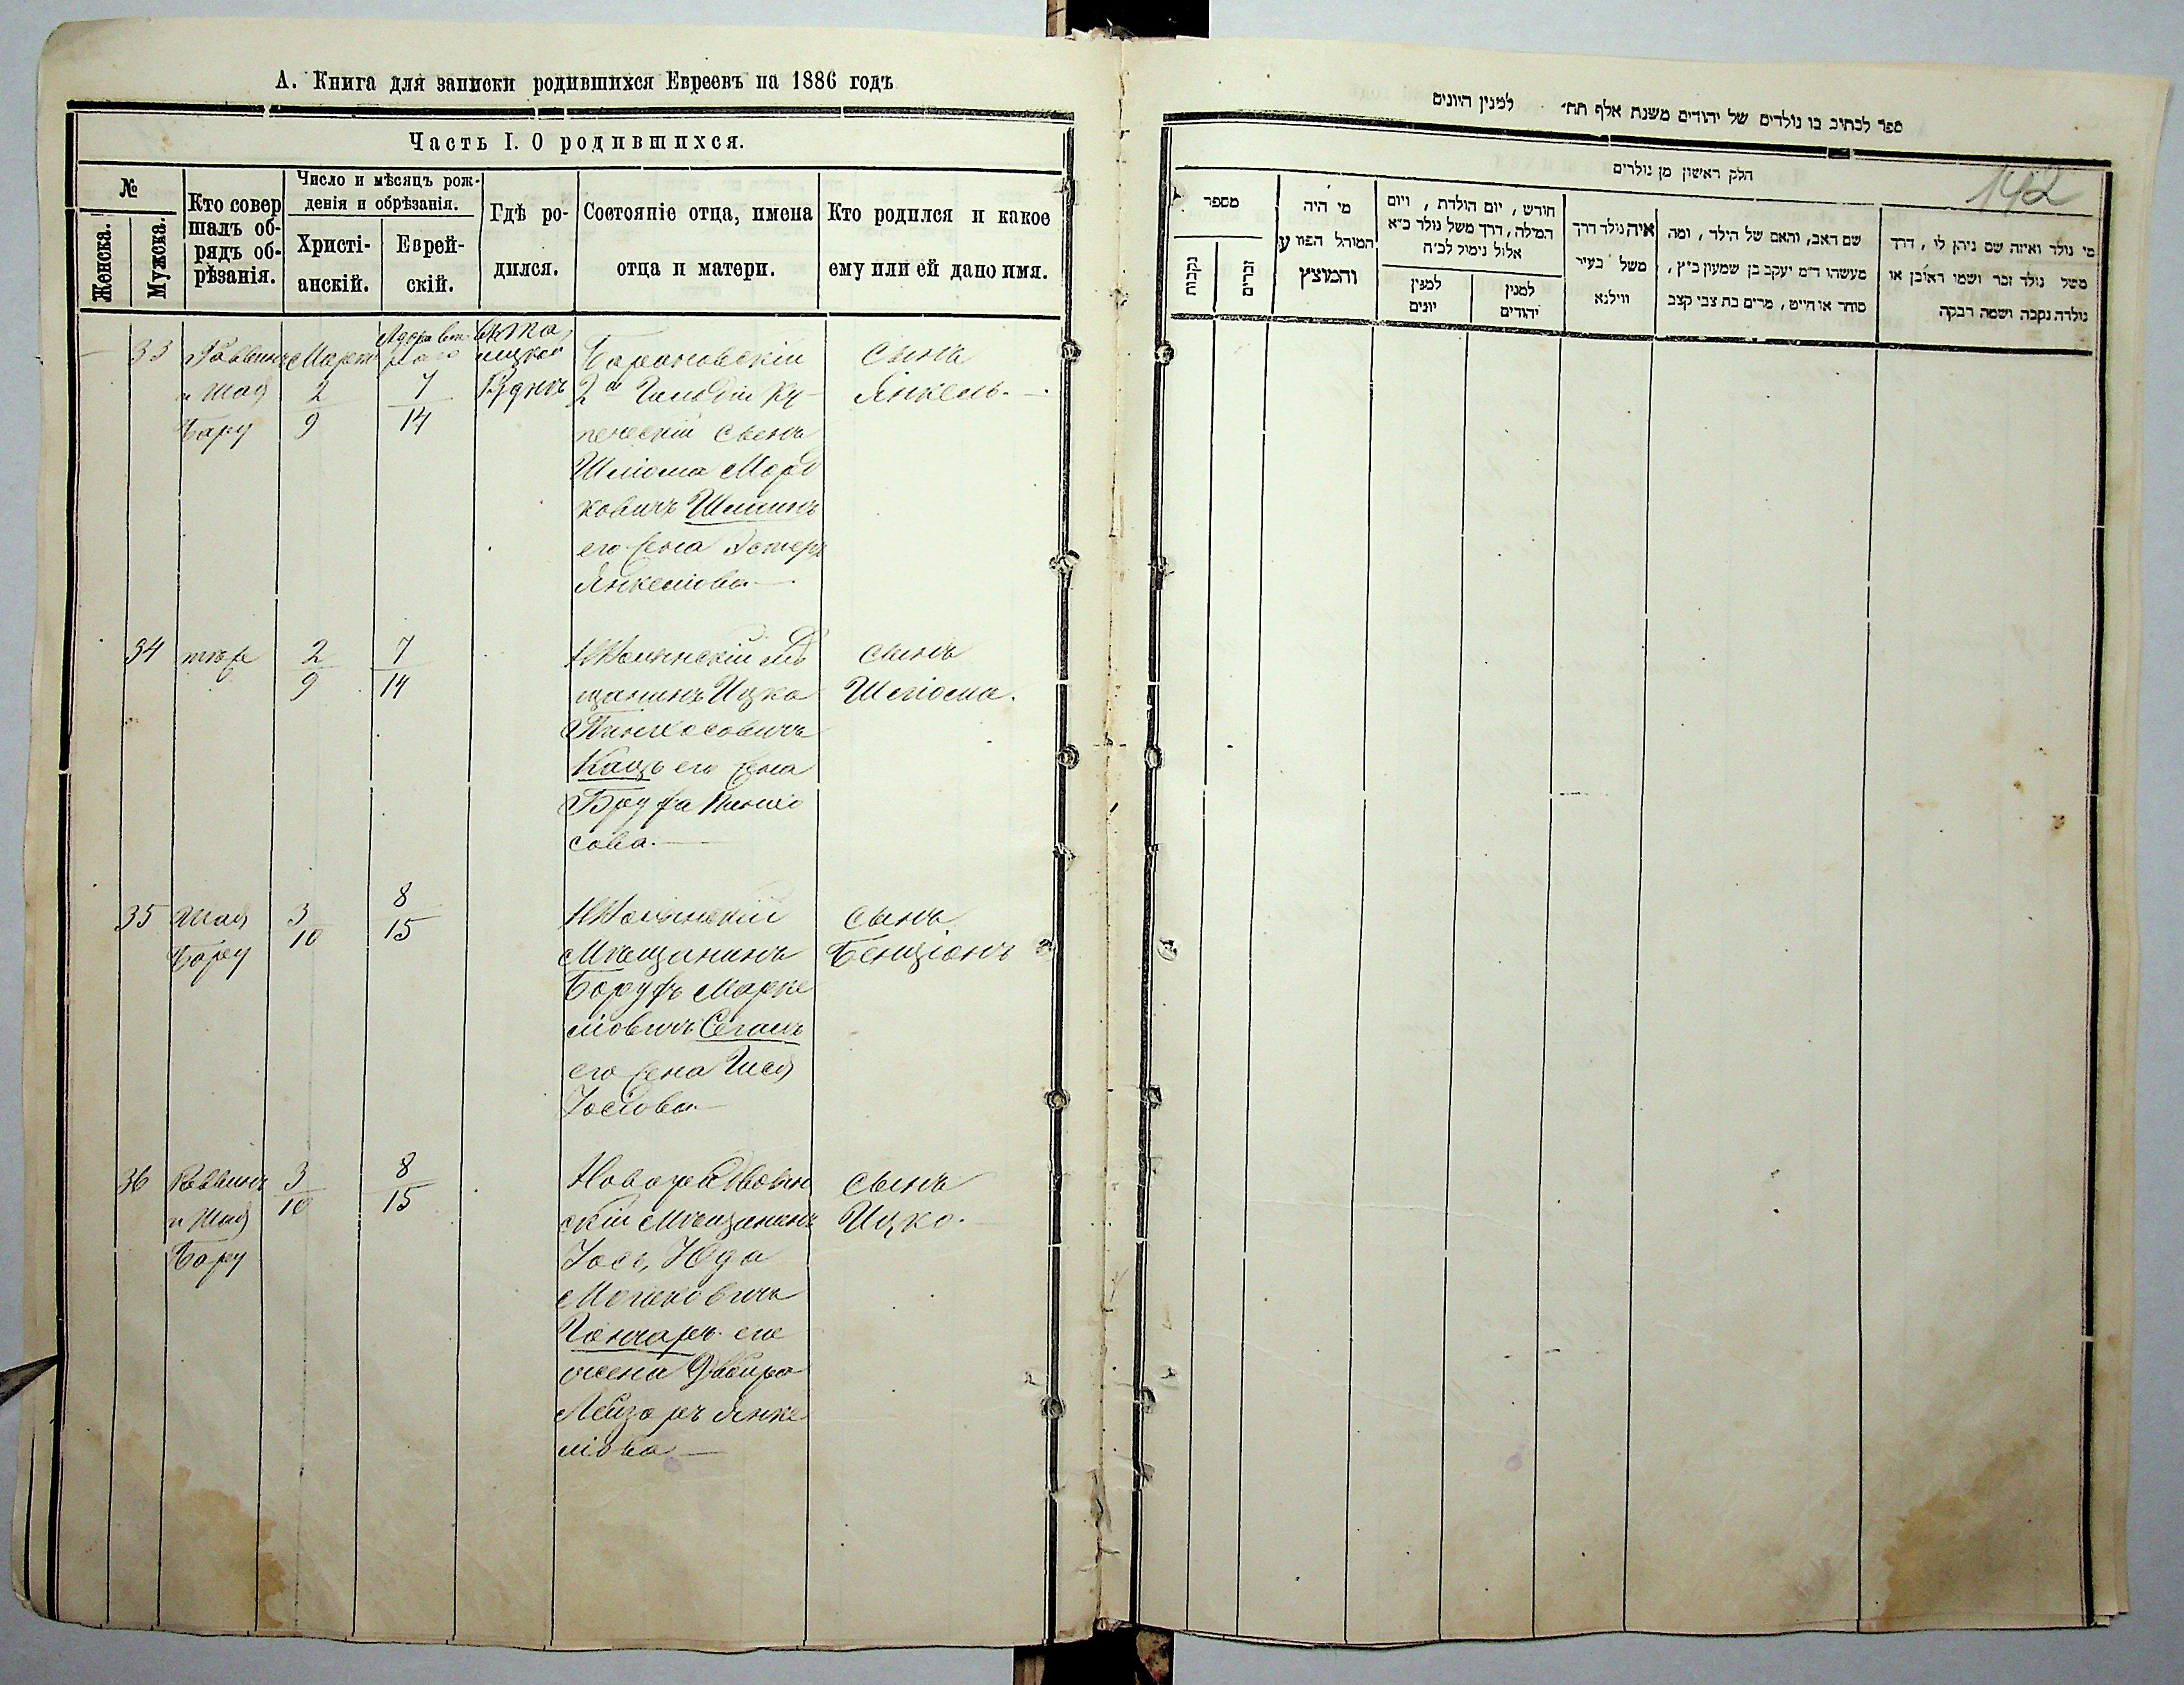 А. Книга для записки родившихся Евреевъ на 1886 годъ
Часть I. О родившихся.
№
Женска.
Мужска.
Кто совер
шалъ об-
рядъ об-
рѣзанія.
Число и мѣсяцъ рож-
денія и обрѣзанія.
Христі-
анскій.
Еврей-
скій.
Гдѣ ро-
дился.
Состояніе отца, имена
отца и матери.
Кто родился и какое
ему или ей дано имя.
33
Раввинъ
и Шая
Бару
Март
2
9
Адара вто
раго
7
14
Барановскій
2й Гильдіи Ку-
печескій сынъ
Шліома Мор
ковичъ
его жена Эстеръ
Янкеліова
сынъ
Янкель.
34
тѣ же
2
9
7
14
мѣ
щанинъ Ицка
Пинхосовичъ
Кацъ его жена
сова.
сынъ
Шліома.
35
Шая
Бару
3
10
8
15
Мѣщанинъ
Борухъ Марке
ліовичъ Сегаль
его жена
Іосіова
сынъ
Бенціонъ
36
Раввинъ
и Шая
Бару
3
10
8
15
скій Мѣщанинъ
Іось, Юда
Гончаръ его
жена Двейра
Лейзеръ Янке
ліова
сынъ
Ицко.
ספר לכתוב בו נולדים של יהודים משנת אלף תת׳ למנין היונים
חלק ראשון מן נולדים
142
מספר
נקבות
זכרים
מי היה
המוהל הפורע
והמוצץ
חודש, יום הולדת, ויום
המילה, דרך משל נולד כ״א
אלול נימול לכ״ח
למנין
יונים
למנין
יהודים
איה נולד דרך
משל בעיר
ווילנא
שם האב, והאם של הילד, ומה
מעשהו ד״מ יעקב בן שמעון כ״ץ,
סוחר או חייט, מרים בת צבי קצב
מי נולד ואיזה שם ניתן לו, דרך
משל נולד זכר ושמו ראובן או
נולדה נקבה ושמה רבקה